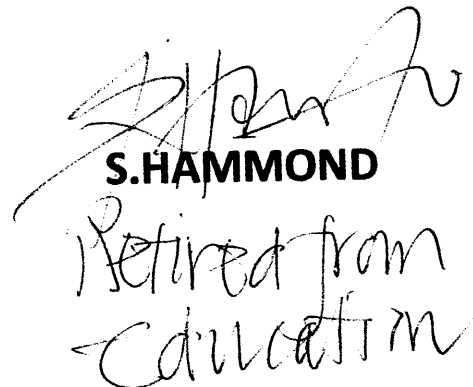 S.HAMMOND
Retired from
Education